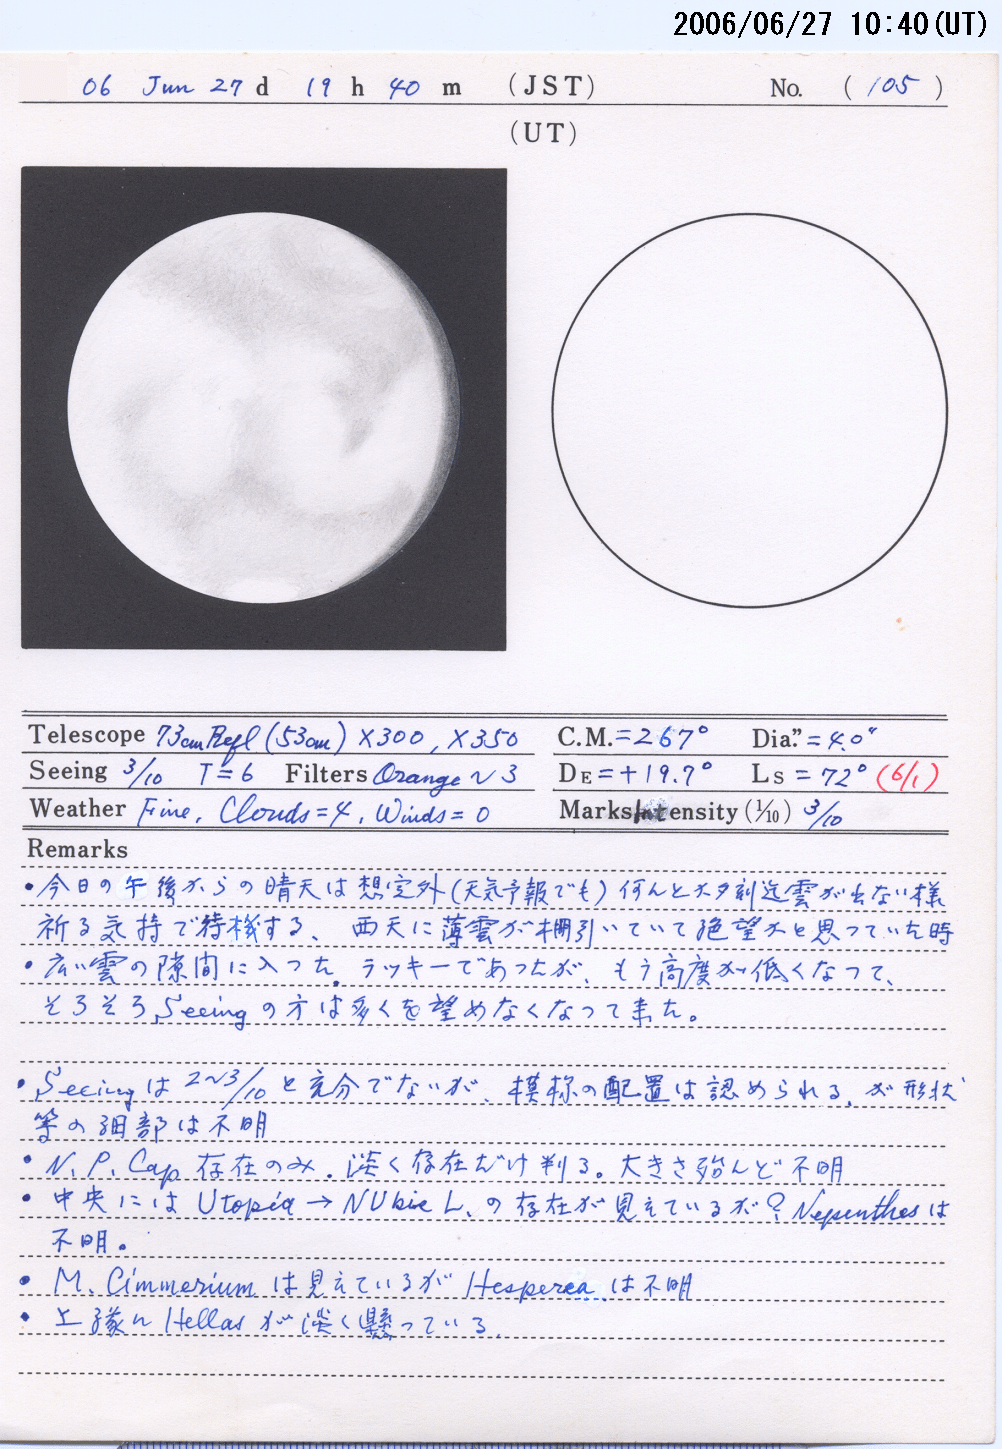 2006/06/27 10:40(UT)
06 Jun 27 d 19 h 40 m (JST) No. (105)
(UT)
Telescope 73cm Refl (53cm) ×300, ×350
C.M.=267° Dia."=4.0"
Seeing 3/10 T=6 Filters Orange~3
DE=+19.7° Ls=72° (6/1)
Weather Fine, Clouds=4, Winds=0
Marks Intensity (1/10) 3/10
Remarks
•今日の午後からの晴天は想定外(天気予報でも)何んと夕刻迄雲が出ない様
祈る気持で待機する、西天に薄雲が棚引いていて絶望かと思っていた時
•広い雲の隙間に入った。ラッキーであったが、もう高度が低くなって、
そろそろSeeingの方は多くを望めなくなって来た。
•Seeingは2~3/10と充分でないが、模様の配置は認められる、が形状
等の細部は不明
•N.P.Cap存在のみ、淡く存在だけ判る。大きさ殆んど不明
•中央にはUtopia→Nubis L.の存在が見えているが?Nepenthesは
不明。
•M.Cimmeriumは見えているがHespereaは不明
•上縁にHellasが淡く懸っている。